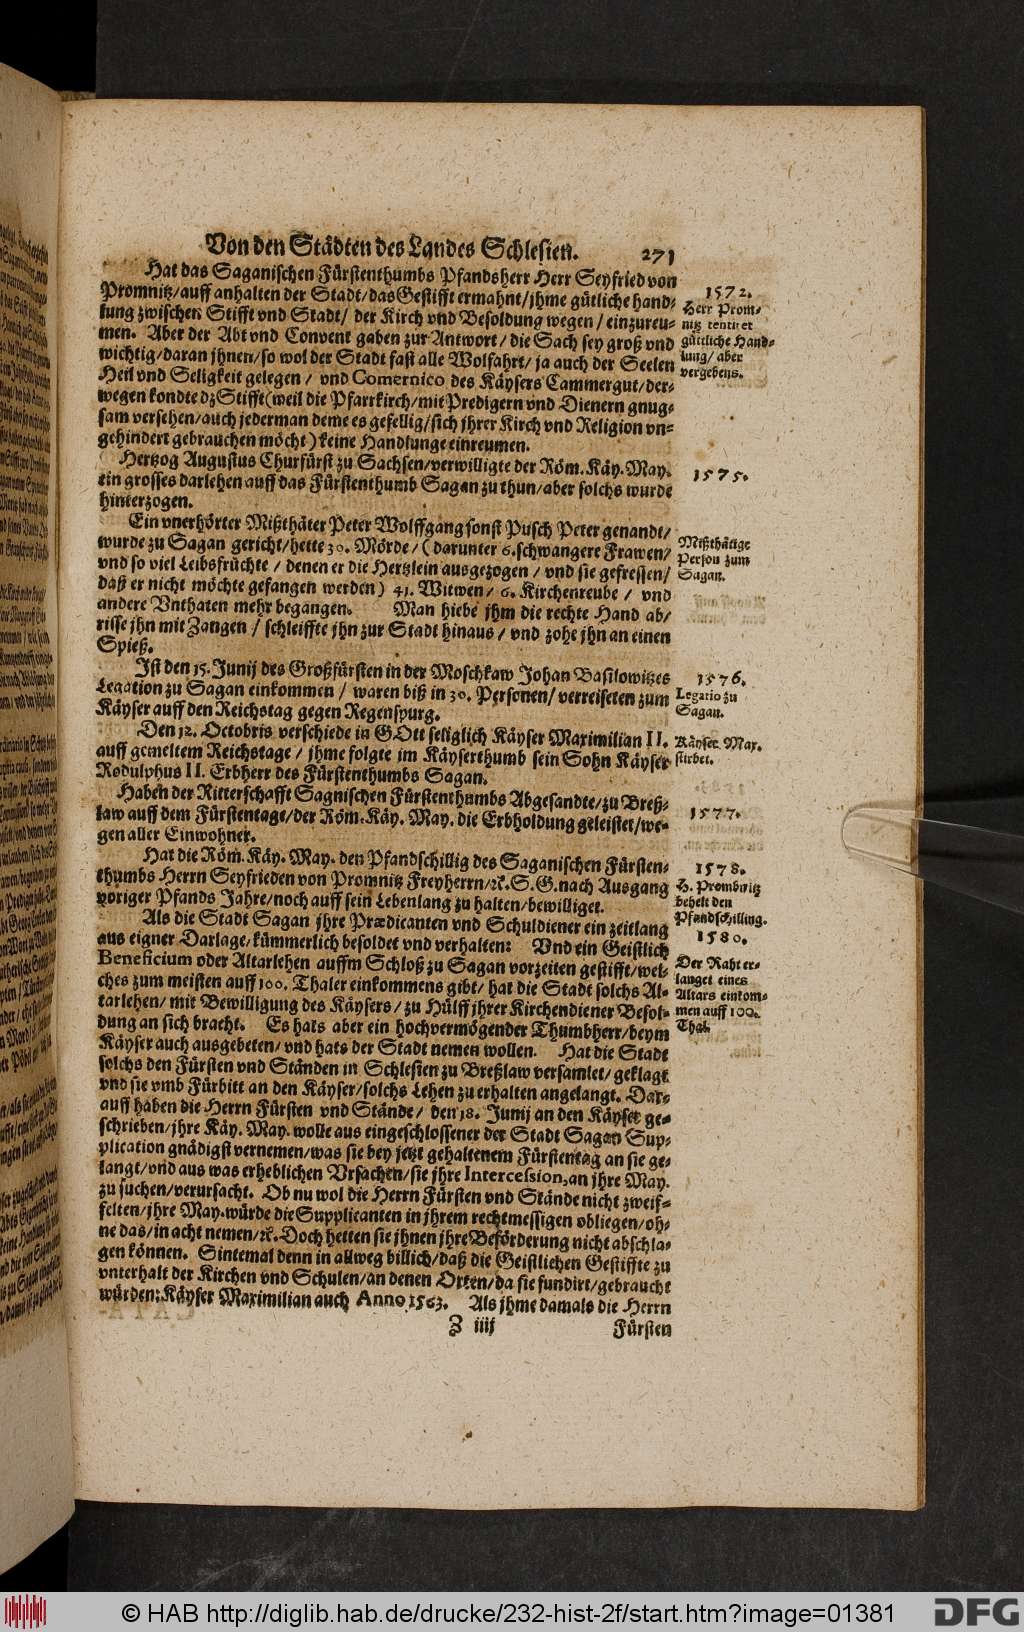 Von den Städten des Landes Schlesien. 271
Hat das Saganischen Fürstenthumbs Pfandsherr Herr Seyfried von
Promnitz/auff anhalten der Stadt/das Gestifft ermahnt/jhme gütliche hand-
lung zwischen Stifft vnd Stadt/ der Kirch vnd Besoldung wegen/ einzureu-
men. Aber der Abt vnd Convent gaben zur Antwort/ die Sach sey groß vnd
wichtig/daran jhnen/so wol der Stadt fast alle Wolfahrt/ ja auch der Seelen
Heil vnd Seligkeit gelegen/ vnd Comernico des Käysers Cammergut/der-
wegen kondte dz Stifft(weil die Pfarrkirch/mit Predigern vnd Dienern gnug-
sam versehen/auch jederman deme es gefellig/sich jhrer Kirch vnd Religion vn-
gehindert gebrauchen möcht) keine Handlunge einreumen.
1572.
Herr Prom-
nitz tentiret
gütliche Hand-
lung/ aber
vergebens.
Hertzog Augustus Churfürst zu Sachsen/verwilligte der Röm. Käy. May.
ein grosses darlehen auff das Fürstenthumb Sagan zu thun/aber solchs wurde
hinterzogen.
1575.
Ein vnerhörter Mißthäter Peter Wolffgang sonst Pusch Peter genandt/
wurde zu Sagan gericht/hette 30. Mörde/ (darunter 6.schwangere Frawen/
vnd so viel Leibsfrüchte/ denen er die Hertzlein ausgezogen/ vnd sie gefressen/
daß er nicht möchte gefangen werden) 41. Witwen/ 6. Kirchenreube/ vnd
andere Vnthaten mehr begangen. Man hiebe jhm die rechte Hand ab/
risse jhn mit Zangen/ schleiffte jhn zur Stadt hinaus/ vnd zohe jhn an einen
Spieß.
Mißthätige
Person zum
Sagan.
Ist den 15. Junij des Großfürsten in der Moschkaw Johan Basilowitzes
Legation zu Sagan einkommen/ waren biß in 30. Personen/ verreiseten zum
Käyser auff den Reichstag gegen Regenspurg.
1576.
Legatio zu
Sagan.
Den 12. Octobris verschiede in GOtt seliglich Käyser Maximilian II.
auff gemeltem Reichstage/ jhme folgte im Käyserthumb sein Sohn Käyser
Rodulphus II. Erbherr des Fürstenthumbs Sagan.
Käyser Max.
stirbet.
Haben der Ritterschafft Sagnischen Fürstenthumbs Abgesandte/zu Breß-
law auff dem Fürstentage/der Röm. Käy. May. die Erbholdung geleistet/we-
gen aller Einwohner.
1577.
Hat die Röm. Käy. May. den Pfandschillig des Saganischen Fürsten-
thumbs Herrn Seyfrieden von Promnitz Freyherrn/ꝛc. S. G. nach Ausgang
voriger Pfands Jahre/noch auff sein Lebenlang zu halten/bewilliget.
1578.
H. Prombnitz
behelt den
Pfandschilling.
Als die Stadt Sagan jhre Prædicanten vnd Schuldiener ein zeitlang
aus eigner Darlage/kümmerlich besoldet vnd verhalten: Vnd ein Geistlich
Beneficium oder Altarlehen auffm Schloß zu Sagan vorzeiten gestifft/wel-
ches zum meisten auff 100. Thaler einkommens gibt/ hat die Stadt solchs Al-
tarlehen/ mit Bewilligung des Käysers/ zu Hülff jhrer Kirchendiener Besol-
dung an sich bracht. Es hats aber ein hochvermögender Thumbherr/beym
Käyser auch ausgebeten/ vnd hats der Stadt nemen wollen. Hat die Stadt
solchs den Fürsten vnd Ständen in Schlesien zu Breßlaw versamlet/ geklagt
vnd sie vmb Fürbitt an den Käyser/solchs Lehen zu erhalten angelangt. Dar-
auff haben die Herrn Fürsten vnd Stände/ den 18. Junij an den Käyser ge-
schrieben/jhre Käy. May. wolle aus eingeschlossener der Stadt Sagan Sup-
plication gnädigst vernemen/was sie bey jetzt gehaltenem Fürstentag an sie ge-
langt/vnd aus was erheblichen Vrsachen/sie jhre Intercession,an jhre May.
zu suchen/verursacht. Ob nu wol die Herrn Fürsten vnd Stände nicht zweif-
felten/jhre May.würde die Supplicanten in jhrem rechtmessigen obliegen/oh-
ne das/in acht nemen/ꝛc. Doch hetten sie jhnen jhre Beförderung nicht abschla-
gen können. Sintemal denn in allweg billich/daß die Geistlichen Gestiffte zu
vnterhalt der Kirchen vnd Schulen/an denen Orten/da sie fundirt/gebraucht
würden: Käyser Maximilian auch Anno 1563. Als jhme damals die Herrn
1580.
Der Raht er-
langet eines
Altars einkom-
men auff 100.
Thal.
Z iiij Fürsten
© HAB http://diglib.hab.de/drucke/232-hist-2f/start.htm?image=01381
DFG